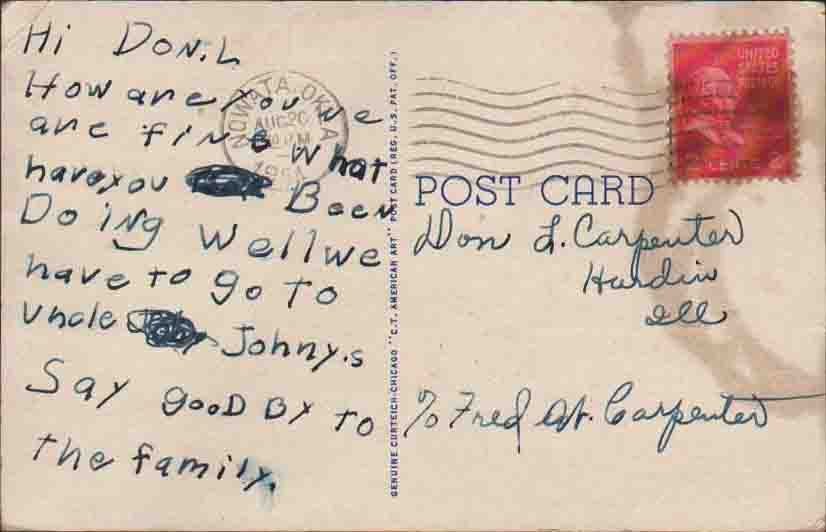 Hi Don.L
How are you we
are fine what
have you Been
Doing Well we
have to go to
Uncle Johny.s
Say gooD By to
the family.
NOWATA, OKLA.
AUG 26
PM
GENUINE CURTEICH-CHICAGO "C.T. AMERICAN ART" POST CARD (REG. U.S. PAT. OFF.)
UNITED
STATES
POSTAGE
POST CARD
Don L. Carpenter
Hardin
Ill
c/o Fred W. Carpenter